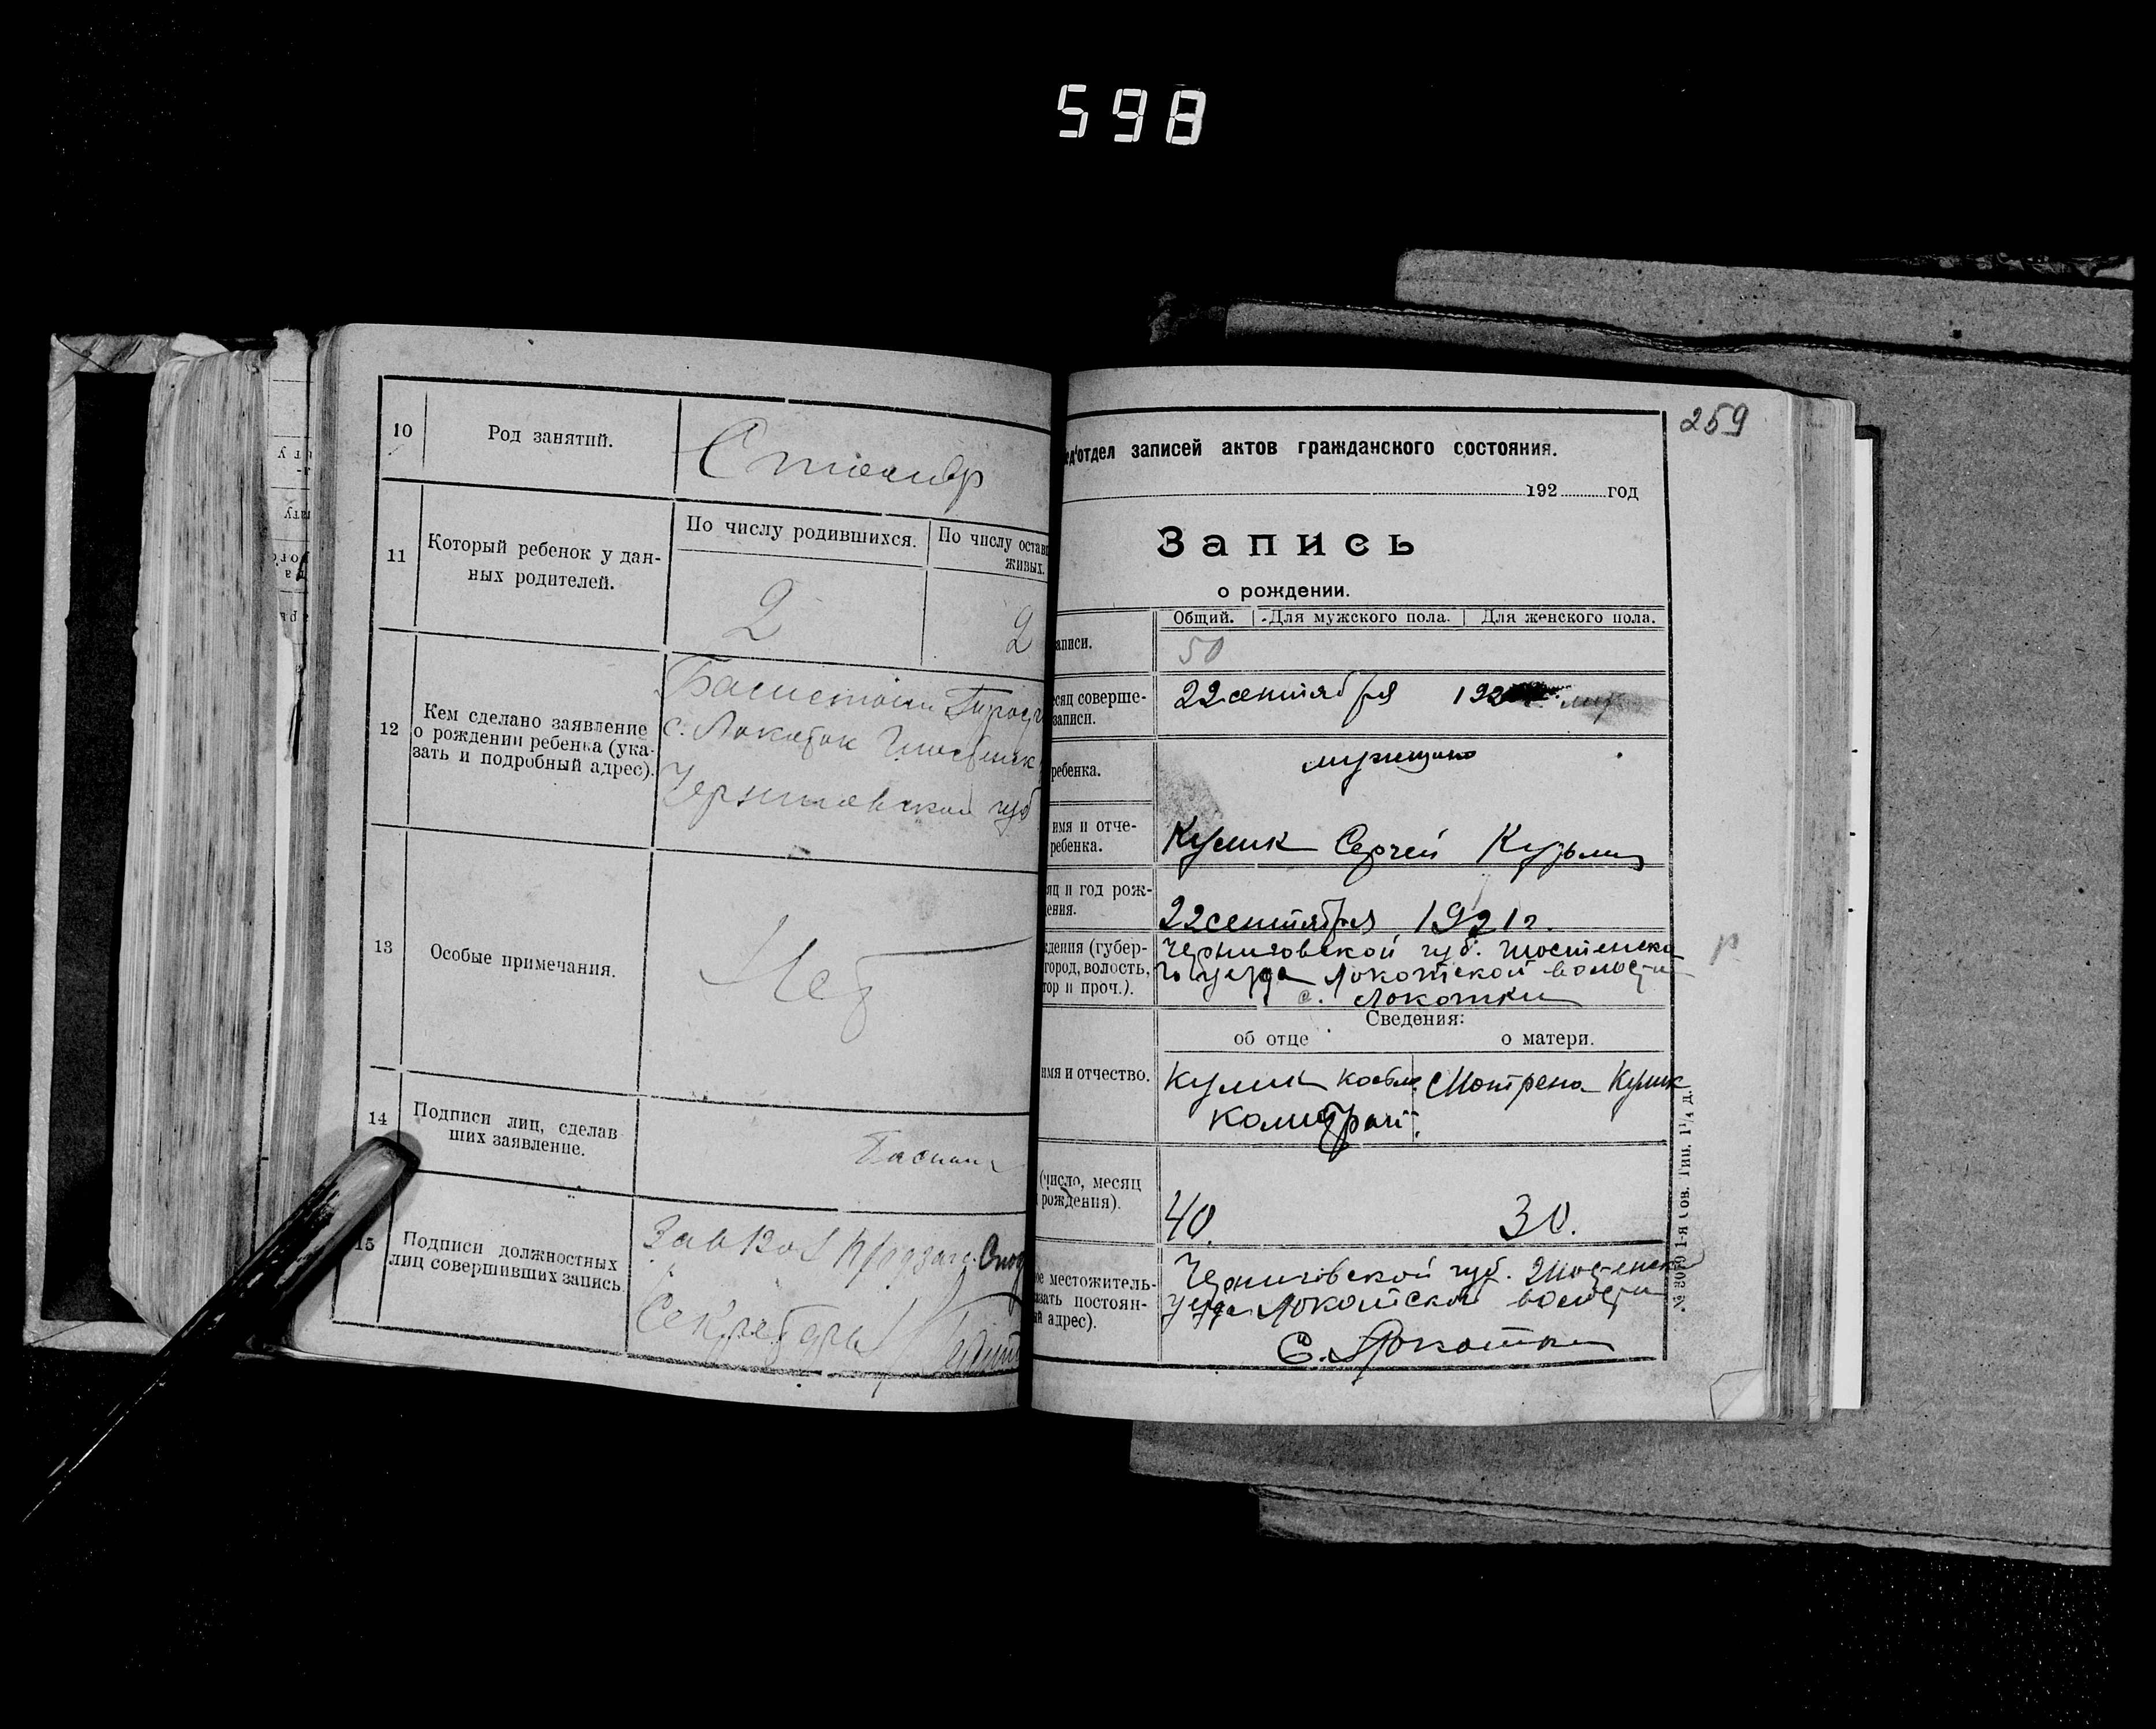 598
10
Род занятий.
Столяр
11
Который ребенок у дан-
ных родителей.
По числу родившихся.
По числу остав
живых.
2
2
12
Кем сделано заявление
о рождении ребенка (ука-
зать и подробный адрес).
с. Локоток
Черниговской губ
13
Особые примечания.
Нет
14
Подписи лиц, сделав
ших заявление.
15
Подписи должностных
лиц совершивших запись
Секретарь
259
од'отдел записей актов гражданского состояния.
192 год
Запись
о рождении.
Общий. Для мужского пола. Для женского пола.
аписи.
50
есяц соверше-
записи.
22 сентября 192
ребенка.
мужщина
имя и отче-
ребенка.
Кулик Сергей Кузьмич
яц и год рож-
дения.
22 сентября 1921 г.
ждения (губер-
город, волость,
тор и проч.).
Черниговской губ. Шостенска
го уезда Локотской волости
с. Локотки
Сведения:
об отце
о матери.
имя и отчество.
Кулик
Мотрена Кулик
(число, месяц
рождения).
40.
30.
ое местожитель-
азать постоян-
й адрес).
Черниговской губ. Шостенск
уезда Локотской волости
С. Локотки
№ 3070 1-я Сов. Тип. 1¼ д.